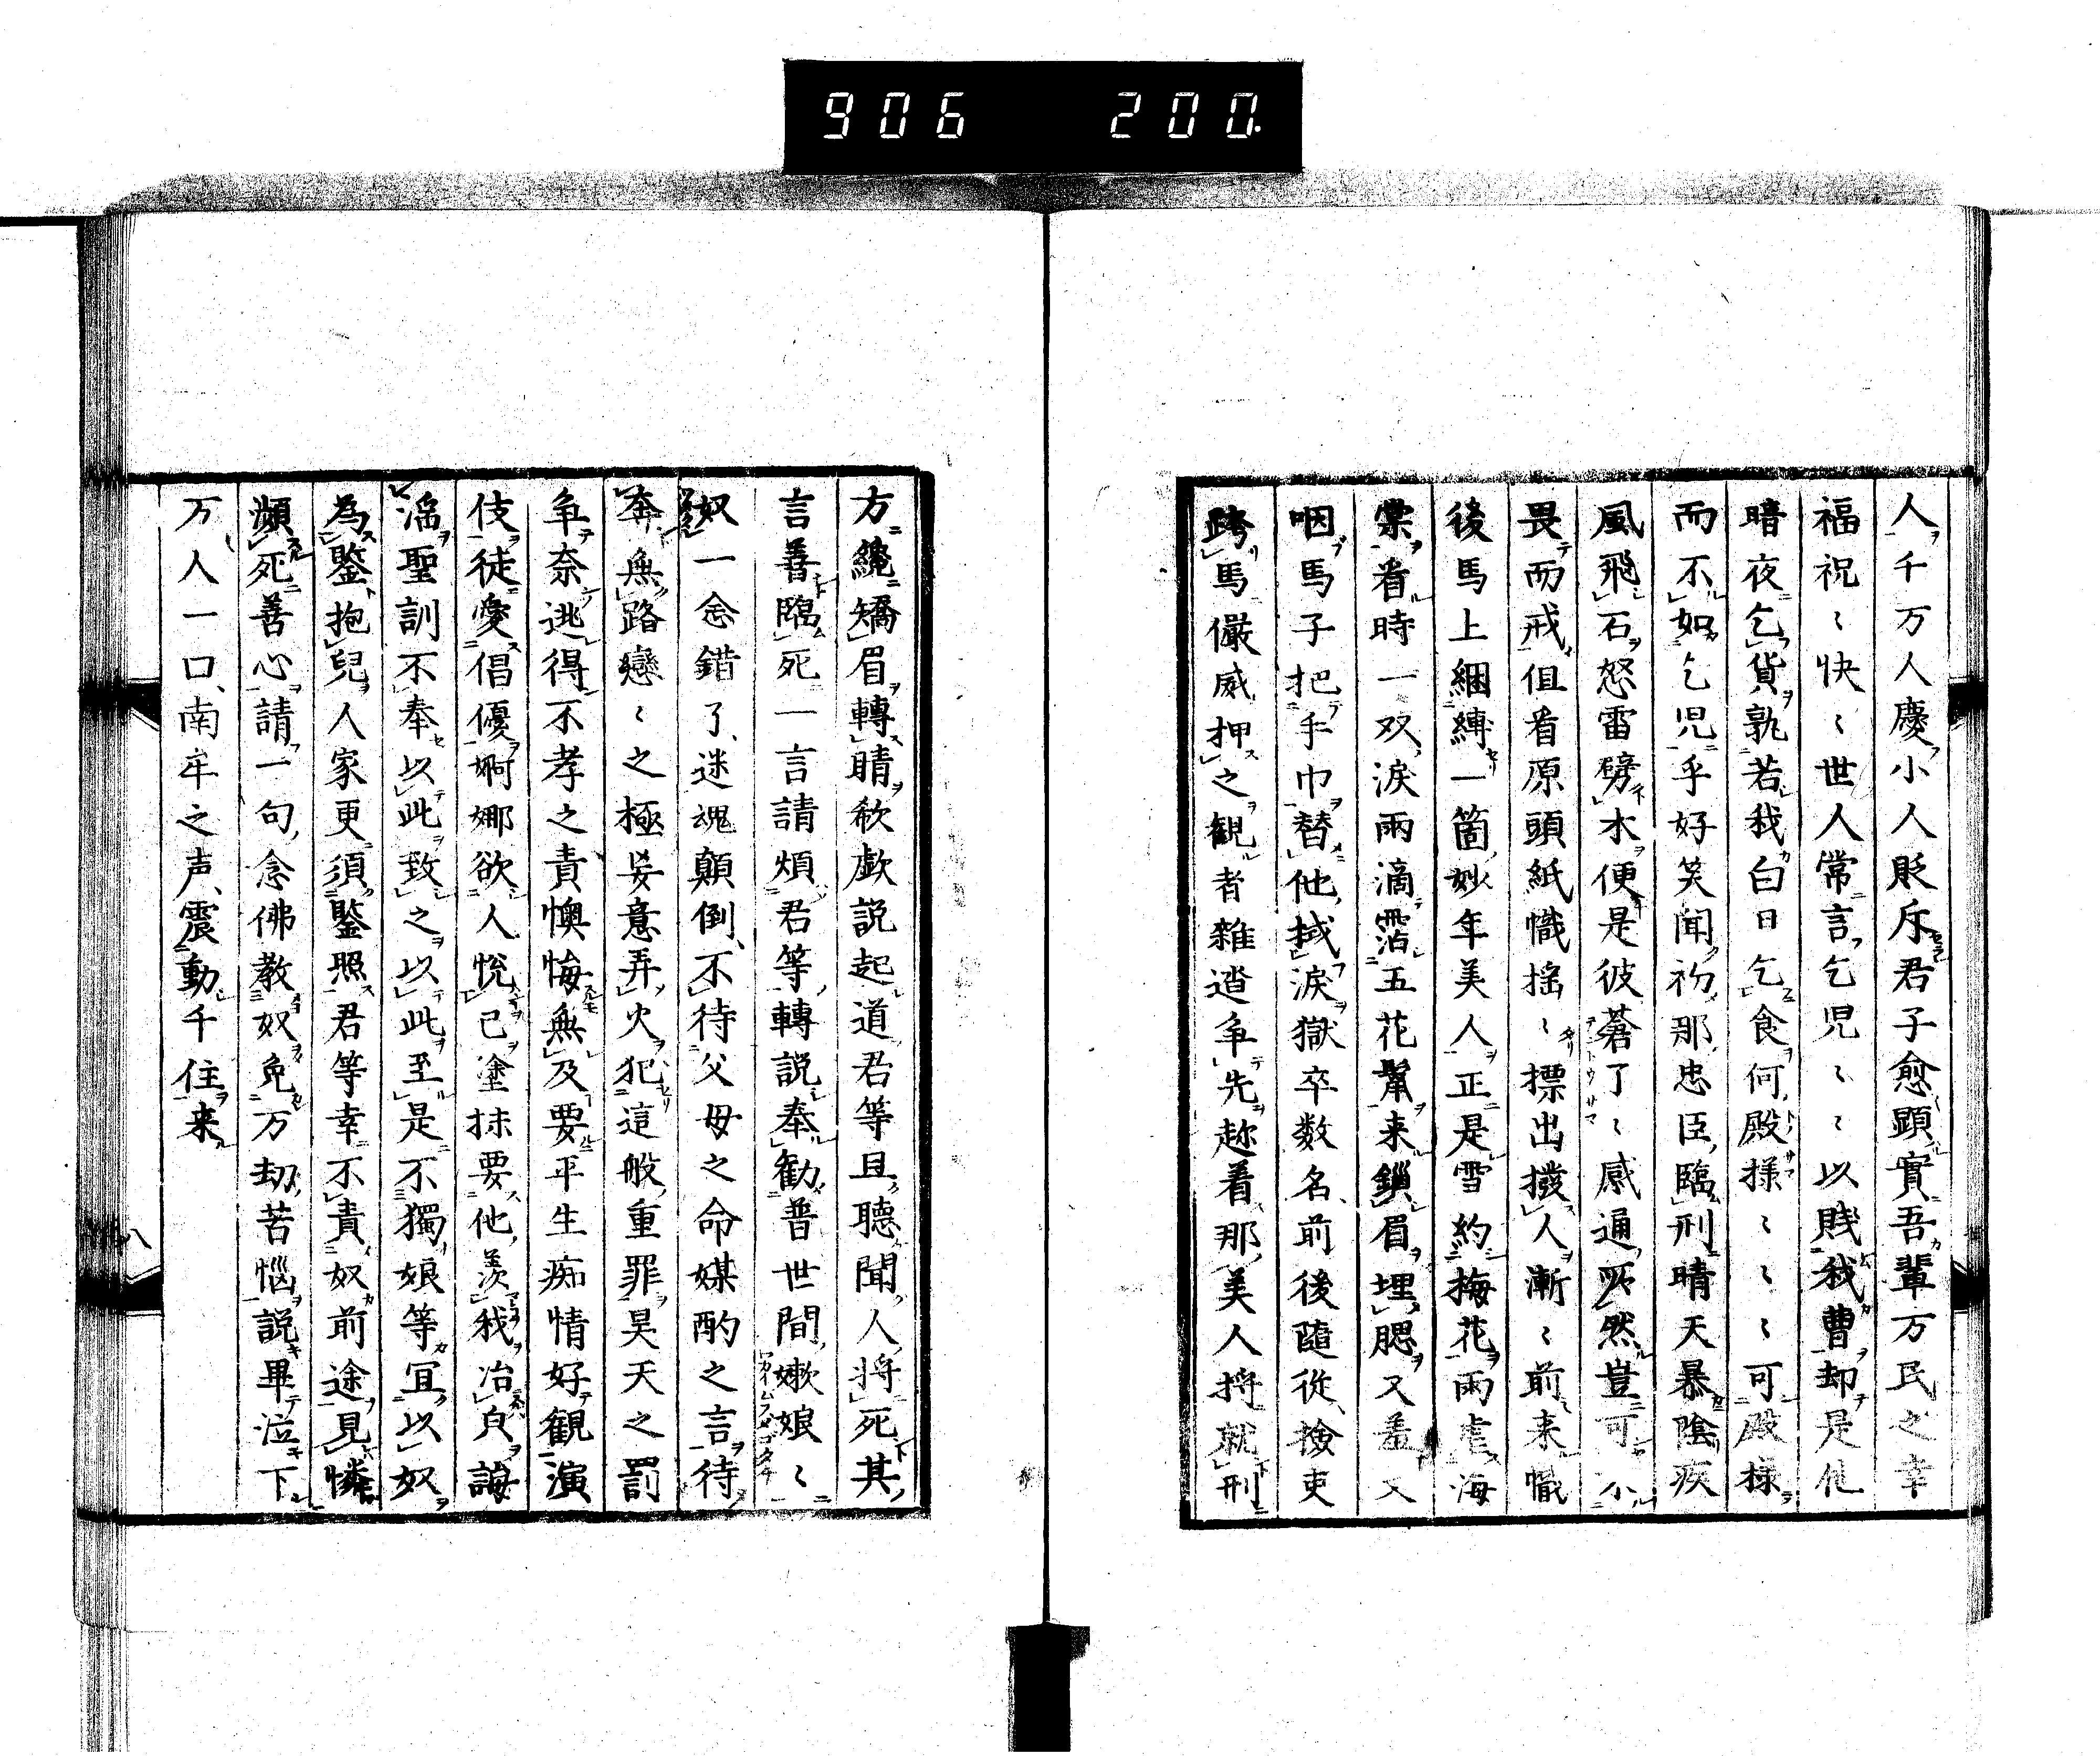 906 200.
人千万人慶小人貶斥君子愈顕實吾輩万民之幸
福祝〻快〻世人常言乞児〻〻以賤我曹却是他
暗夜乞貨孰若我白日乞食何殿様〻〻〻可殿様
而不如乞児乎好笑聞礽那忠臣臨刑晴天暴陰疾
風飛石怒雷劈木便是彼蒼了〻感通所然豈可不
畏而戒但看原頭紙幟揺〻標出撥人漸〻前来幟
後馬上綑縛一箇妙年美人正是雪約梅花雨虐海
棠看時一双涙雨滴霑五花鬣来鎖眉埋腮又羞又
咽馬子把手巾替他拭涙獄卒数名前後随従撿吏
跨馬儼威押之観者雑遝争先趂着那美人将就刑
方纔矯眉轉睛欷歔説起道君等且聴聞人将死其
言善臨死一言請煩君等轉説奉勧普世間嫩娘〻
奴一念錯了迷魂顛倒不待父母之命媒酌之言待
奔無路戀〻之極妄意弄火犯這般重罪昊天之罰
争奈逃得不孝之責懊悔無及要平生痴情好観演
伎徒愛倡優婀娜欲人悦己塗抹要他羨我冶皃誨
滛聖訓不奉以此致之以此至是不獨娘等冝以奴
為鑒抱兒人家更須鑒照君等幸不責奴前途見憐
瀕死善心請一句念佛教奴免万劫苦惱説畢泣下
万人一口南牟之声震動千住来
八